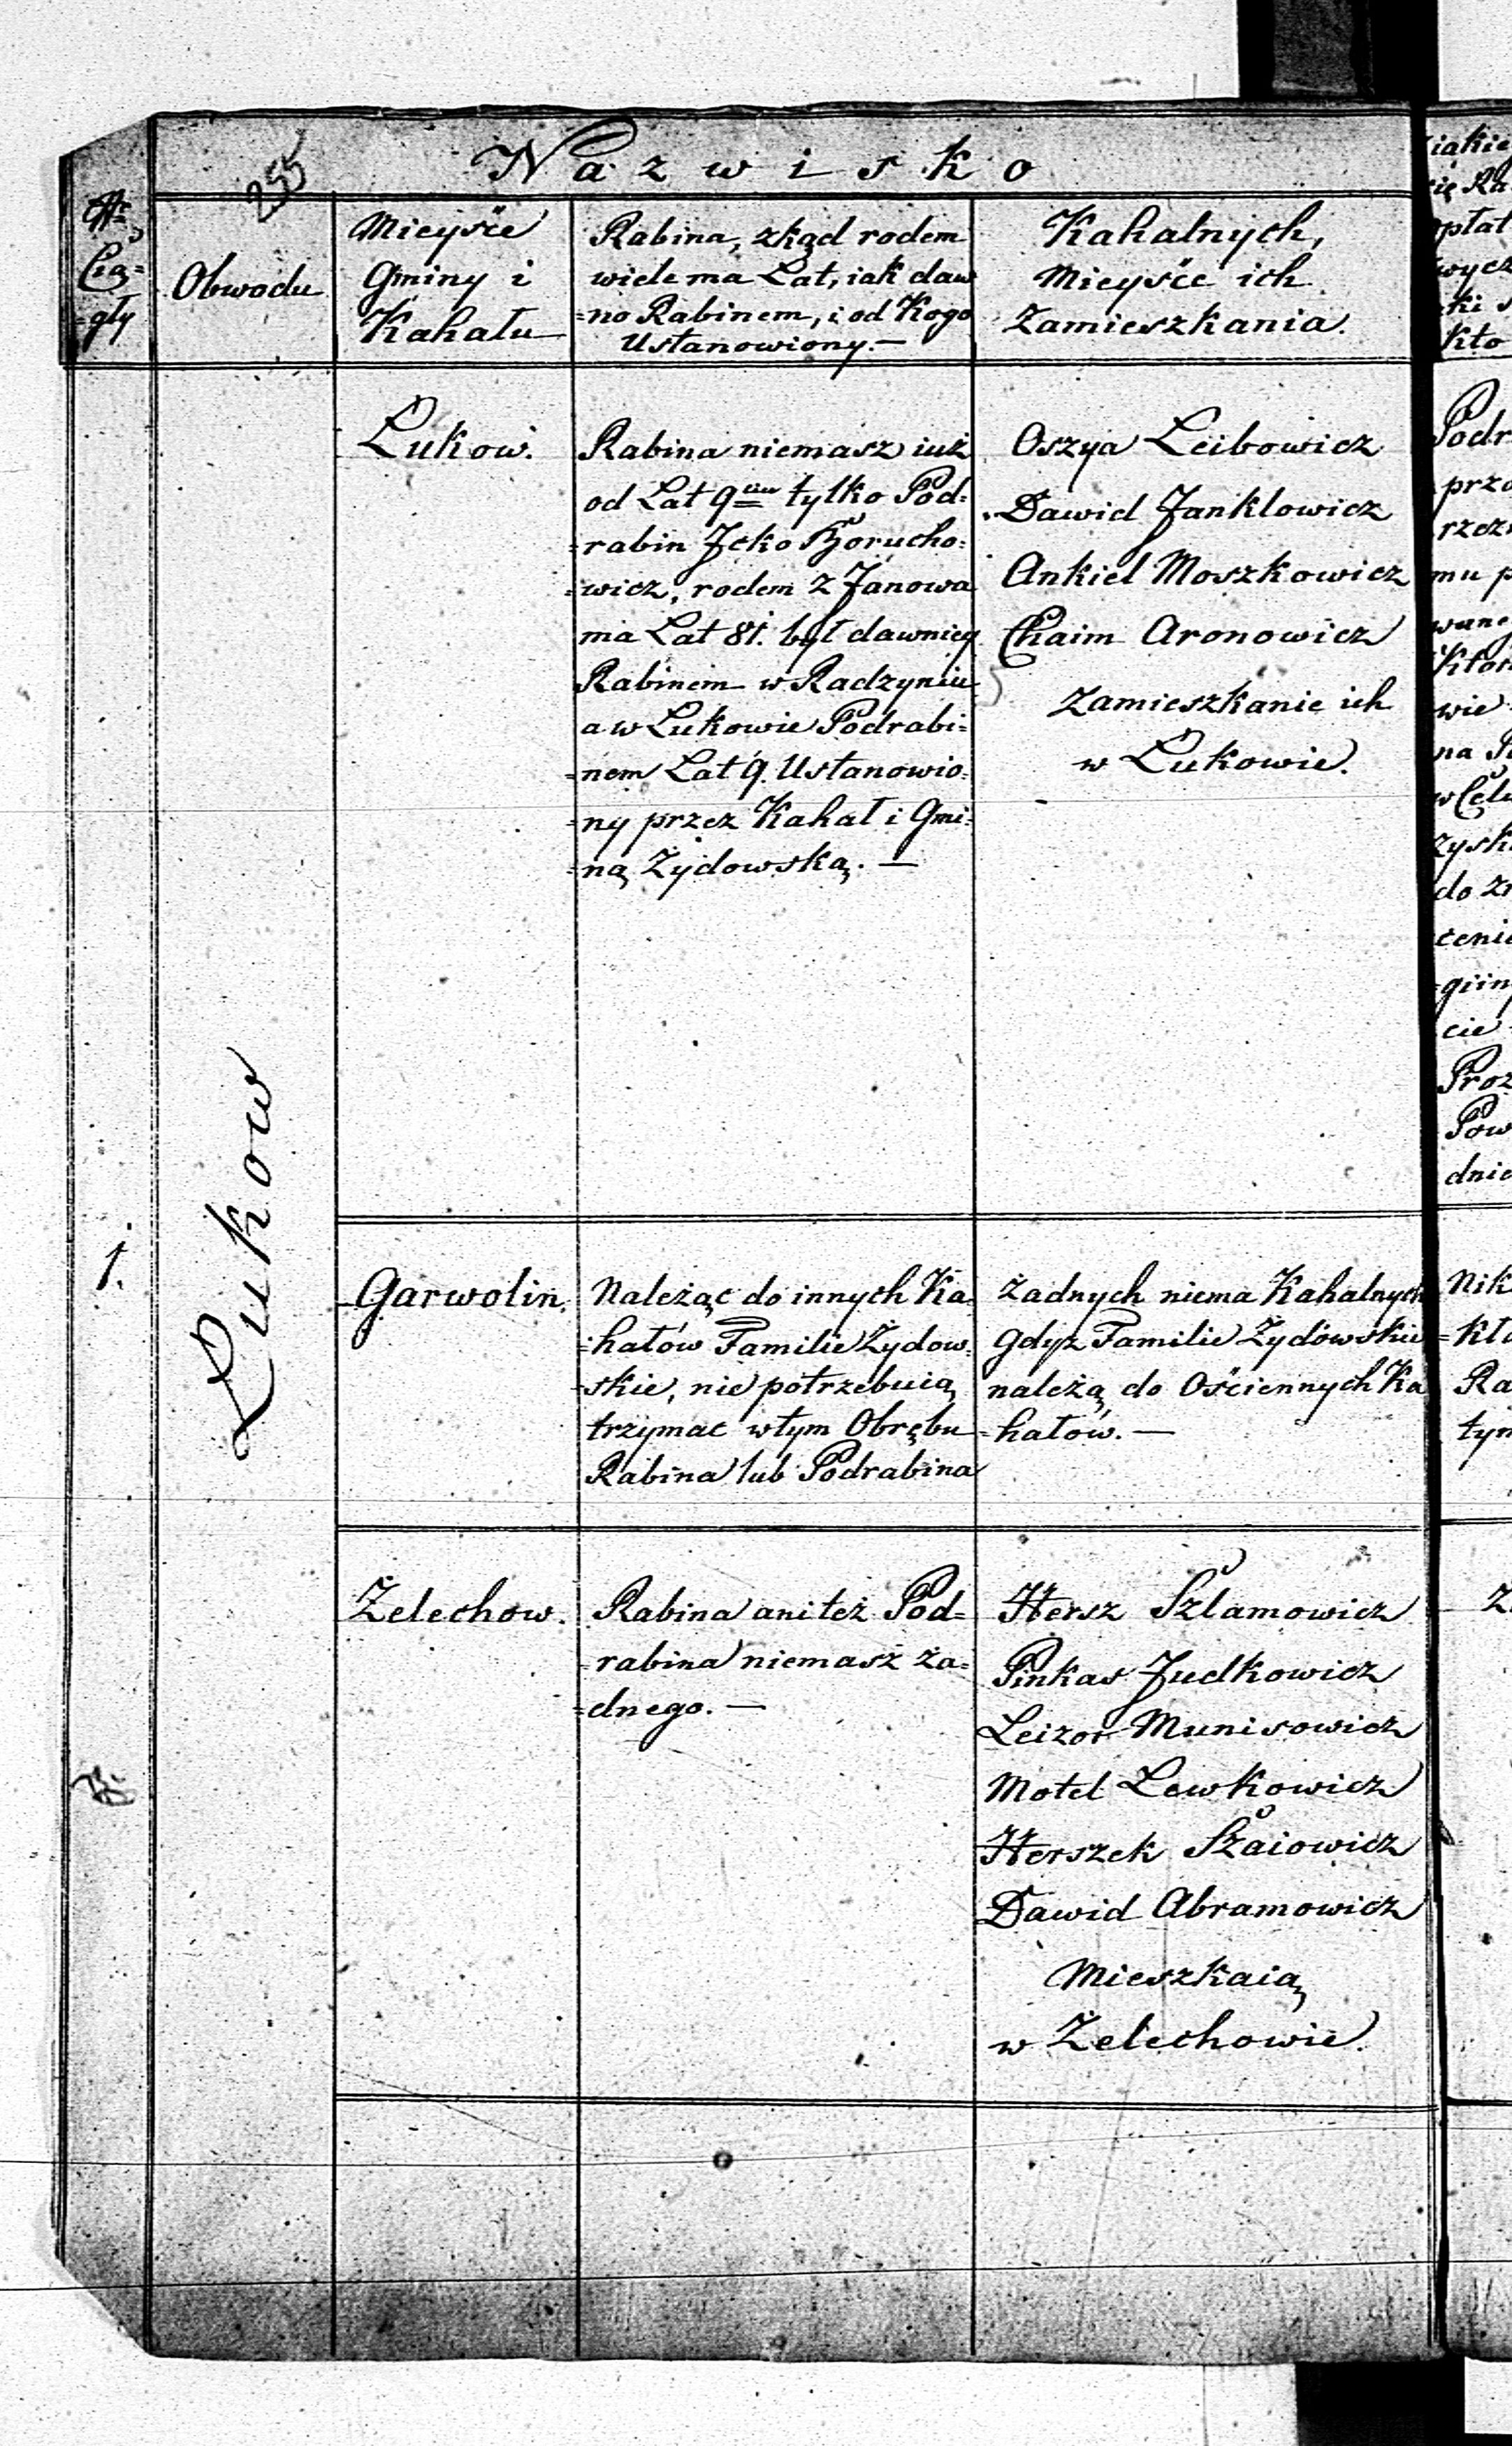 255
Nazwisko
Nr
Cią=
=gły
Obwodu
Mieysce
Gminy i
Kahału
Rabina, zkąd rodem
wiele ma Lat, iak daw
=no Rabinem, i od Kogo
Ustanowiony.—
Kahalnych,
Mieysce ich
Zamieszkania.
1.
Łukow
Łukow.
Rabina niemasz iuż
od Lat 9ciu tylko Pod=
=rabin Jcko Borucho=
=wicz, rodem z Janowa
ma Lat 81. był dawniey
Rabinem w Radzyniu
a w Łukowie Podrabi=
=nem Lat 9. Ustanowio=
=ny przez Kahał i Gmi=
=ną Żydowską.—
Oszya Leibowicz
Dawid Janklowicz
Ankiel Moszkowicz
Chaim Aronowicz
Zamieszkanie ich
w Łukowie.
Garwolin.
Należąc do innych Ka=
=hałów Familie Żydow=
=skie, nie potrzebuią
trzymac w tym Obrębu
Rabina lub Podrabina
Żadnych niema Kahalnych
gdyz Familie Żydowskie
należą do Ościennych Ka
=hałów.—
Żelechow.
Rabina ani też Pod=
=rabina niemasz ża=
=dnego.—
Hersz Szlamowicz
Pinkas Judkowicz
Leizor Munisowicz
Motel Lewkowicz
Herszek Szaiowicz
Dawid Abramowicz
Mieszkaią
w Żelechowie.
iakie
się Ra
opłat
wycz
=ki s
Kto
Podr
prze
rzez
mu p
wane
wie
na P
w Cel
zysk
do z
cenie
=giin
cie
Proz
Pow
dnie
Nik
=kła
Ra
tym
Z